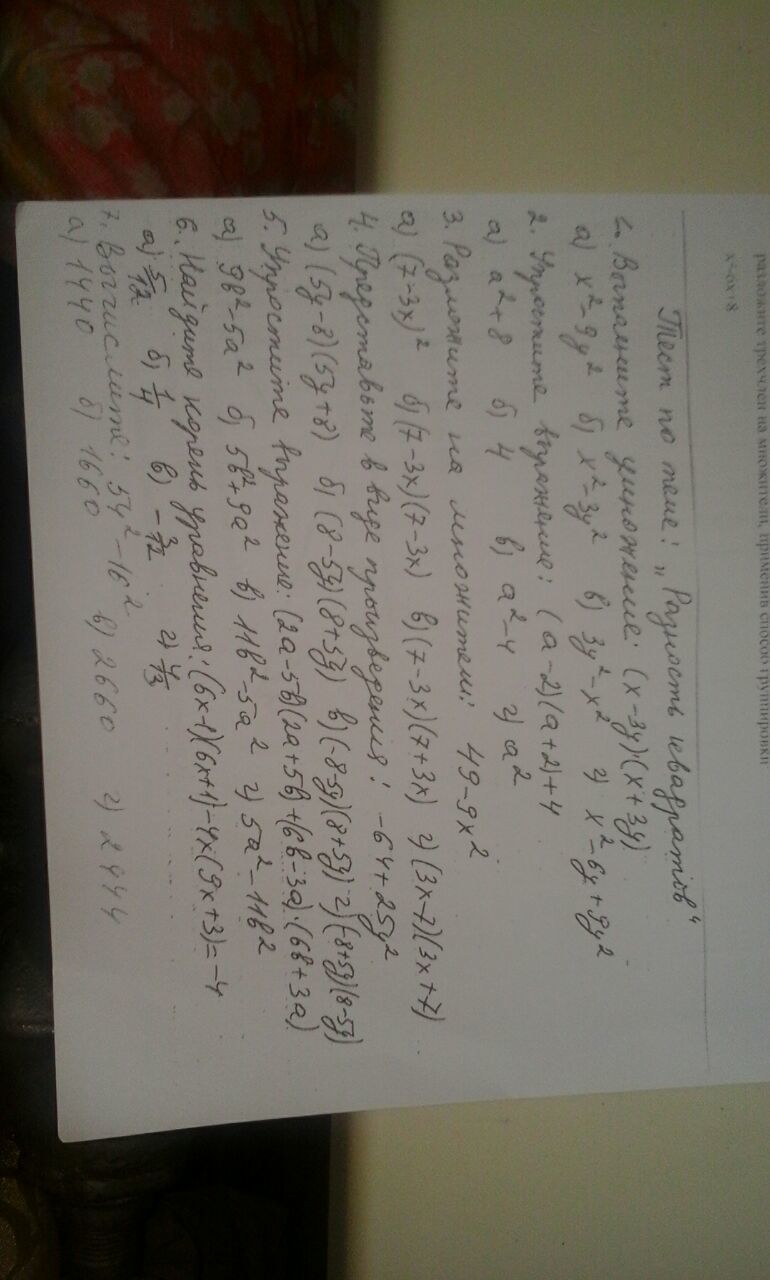 разложите трехчлен на множители, применив способ группировки
Тест по теме: „Разность квадратов"
1. Выполните умножение: (x-3y)(x+3y)
а) x²-9y² б) x²-3y² в) 3y²-x² г) x²-6y+9y²
2. Упростите выражение: (a-2)(a+2)+4
а) a²+8 б) 4 в) a²-4 г) a²
3. Разложите на множители: 49-9x²
а) (7-3x)² б) (7-3x)(7-3x) в) (7-3x)(7+3x) г) (3x-7)(3x+7)
4. Представьте в виде произведения: -64+25y²
а) (5y-8)(5y+8) б) (8-5y)(8+5y) в) (-8-5y)(8+5y) г) (-8+5y)(8-5y)
5. Упростите выражение: (2a-5b)(2a+5b)+(6b-3a)·(6b+3a)
а) 9b²-5a² б) 5b²+9a² в) 11b²-5a² г) 5a²-11b²
6. Найдите корень уравнения: (6x-1)(6x+1)-4x·(9x+3)=-4
а) 5/12 б) 1/4 в) -3/12 г) 4/3
7. Вычислите: 54²-16²
а) 1440 б) 1660 в) 2660 г) 2444